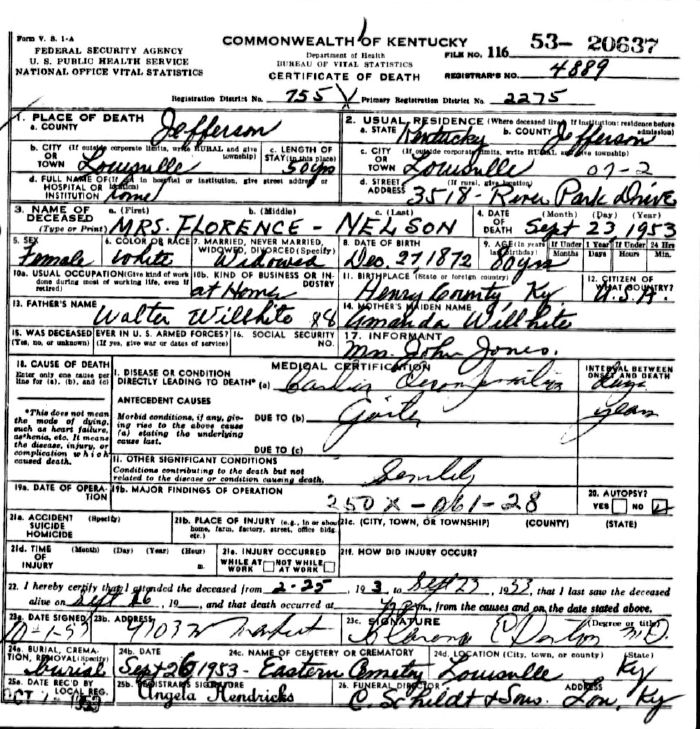 Form V. S. 1-A
FEDERAL SECURITY AGENCY
U. S. PUBLIC HEALTH SERVICE
NATIONAL OFFICE VITAL STATISTICS
COMMONWEALTH OF KENTUCKY
Department of Health
BUREAU OF VITAL STATISTICS
CERTIFICATE OF DEATH
FILE NO. 116 53- 20637
REGISTRAR'S NO. 4889
Registration District No. 755 X Primary Registration District No. 2275
1. PLACE OF DEATH
a. COUNTY Jefferson
2. USUAL RESIDENCE (Where deceased lived. If institution: residence before admission)
a. STATE Kentucky b. COUNTY Jefferson
b. CITY (If outside corporate limits, write RURAL and give township) OR TOWN Louisville
c. LENGTH OF STAY (in this place) 50 yrs
c. CITY (If outside corporate limits, write RURAL and give township) OR TOWN Louisville 07-2
d. FULL NAME OF (If not in hospital or institution, give street address or location) HOSPITAL OR INSTITUTION Home
d. STREET ADDRESS (If rural, give location) 3518- River Park Drive
3. NAME OF DECEASED (Type or Print) a. (First) b. (Middle) c. (Last)
MRS. FLORENCE - NELSON
4. DATE OF DEATH (Month) (Day) (Year) Sept 23 1953
5. SEX Female
6. COLOR OR RACE White
7. MARRIED, NEVER MARRIED, WIDOWED, DIVORCED (Specify) Widowed
8. DATE OF BIRTH Dec. 27 1872
9. AGE (In years last birthday) yrs If Under 1 Year Months Days If Under 24 Hrs Hours Min.
10a. USUAL OCCUPATION (Give kind of work done during most of working life, even if retired)
10b. KIND OF BUSINESS OR INDUSTRY at Home
11. BIRTHPLACE (State or foreign country) Henry County, Ky.
12. CITIZEN OF WHAT COUNTRY? U.S.A.
13. FATHER'S NAME Walter Willhite
14. MOTHER'S MAIDEN NAME Amanda Willhite
15. WAS DECEASED EVER IN U. S. ARMED FORCES? (Yes, no, or unknown) (If yes, give war or dates of service)
16. SOCIAL SECURITY NO.
17. INFORMANT Mrs. John Jones.
18. CAUSE OF DEATH
Enter only one cause per line for (a), (b), and (c)
*This does not mean the mode of dying, such as heart failure, asthenia, etc. It means the disease, injury, or complication which caused death.
MEDICAL CERTIFICATION
I. DISEASE OR CONDITION DIRECTLY LEADING TO DEATH* (a) Cardiac
INTERVAL BETWEEN ONSET AND DEATH days
ANTECEDENT CAUSES
Morbid conditions, if any, giving rise to the above cause (a) stating the underlying cause last.
DUE TO (b) Goiter years
DUE TO (c)
II. OTHER SIGNIFICANT CONDITIONS
Conditions contributing to the death but not related to the disease or condition causing death. Senility
19a. DATE OF OPERATION
19b. MAJOR FINDINGS OF OPERATION
250X-061-28
20. AUTOPSY? YES NO
21a. ACCIDENT SUICIDE HOMICIDE (Specify)
21b. PLACE OF INJURY (e.g., in or about home, farm, factory, street, office bldg. etc.)
21c. (CITY, TOWN, OR TOWNSHIP) (COUNTY) (STATE)
21d. TIME OF INJURY (Month) (Day) (Year) (Hour) m
21e. INJURY OCCURRED WHILE AT WORK NOT WHILE AT WORK
21f. HOW DID INJURY OCCUR?
22. I hereby certify that I attended the deceased from 2-25, 1953, to Sept 23 1953, that I last saw the deceased
alive on Sept 16, 19 , and that death occurred at m., from the causes and on the date stated above.
23a. DATE SIGNED 10-1-53
23b. ADDRESS 4703 W Market
23c. SIGNATURE (Degree or title) M.D.
24a. BURIAL, CREMATION, REMOVAL (Specify) Burial
24b. DATE Sept 26 1953-
24c. NAME OF CEMETERY OR CREMATORY Eastern Cemetry
24d. LOCATION (City, town, or county) (State) Louisville Ky
25a. DATE REC'D BY LOCAL REG. OCT 1 1953
25b. REGISTRAR'S SIGNATURE Angela Hendricks
26. FUNERAL DIRECTOR C Schildt & Sons. ADDRESS Lou, Ky